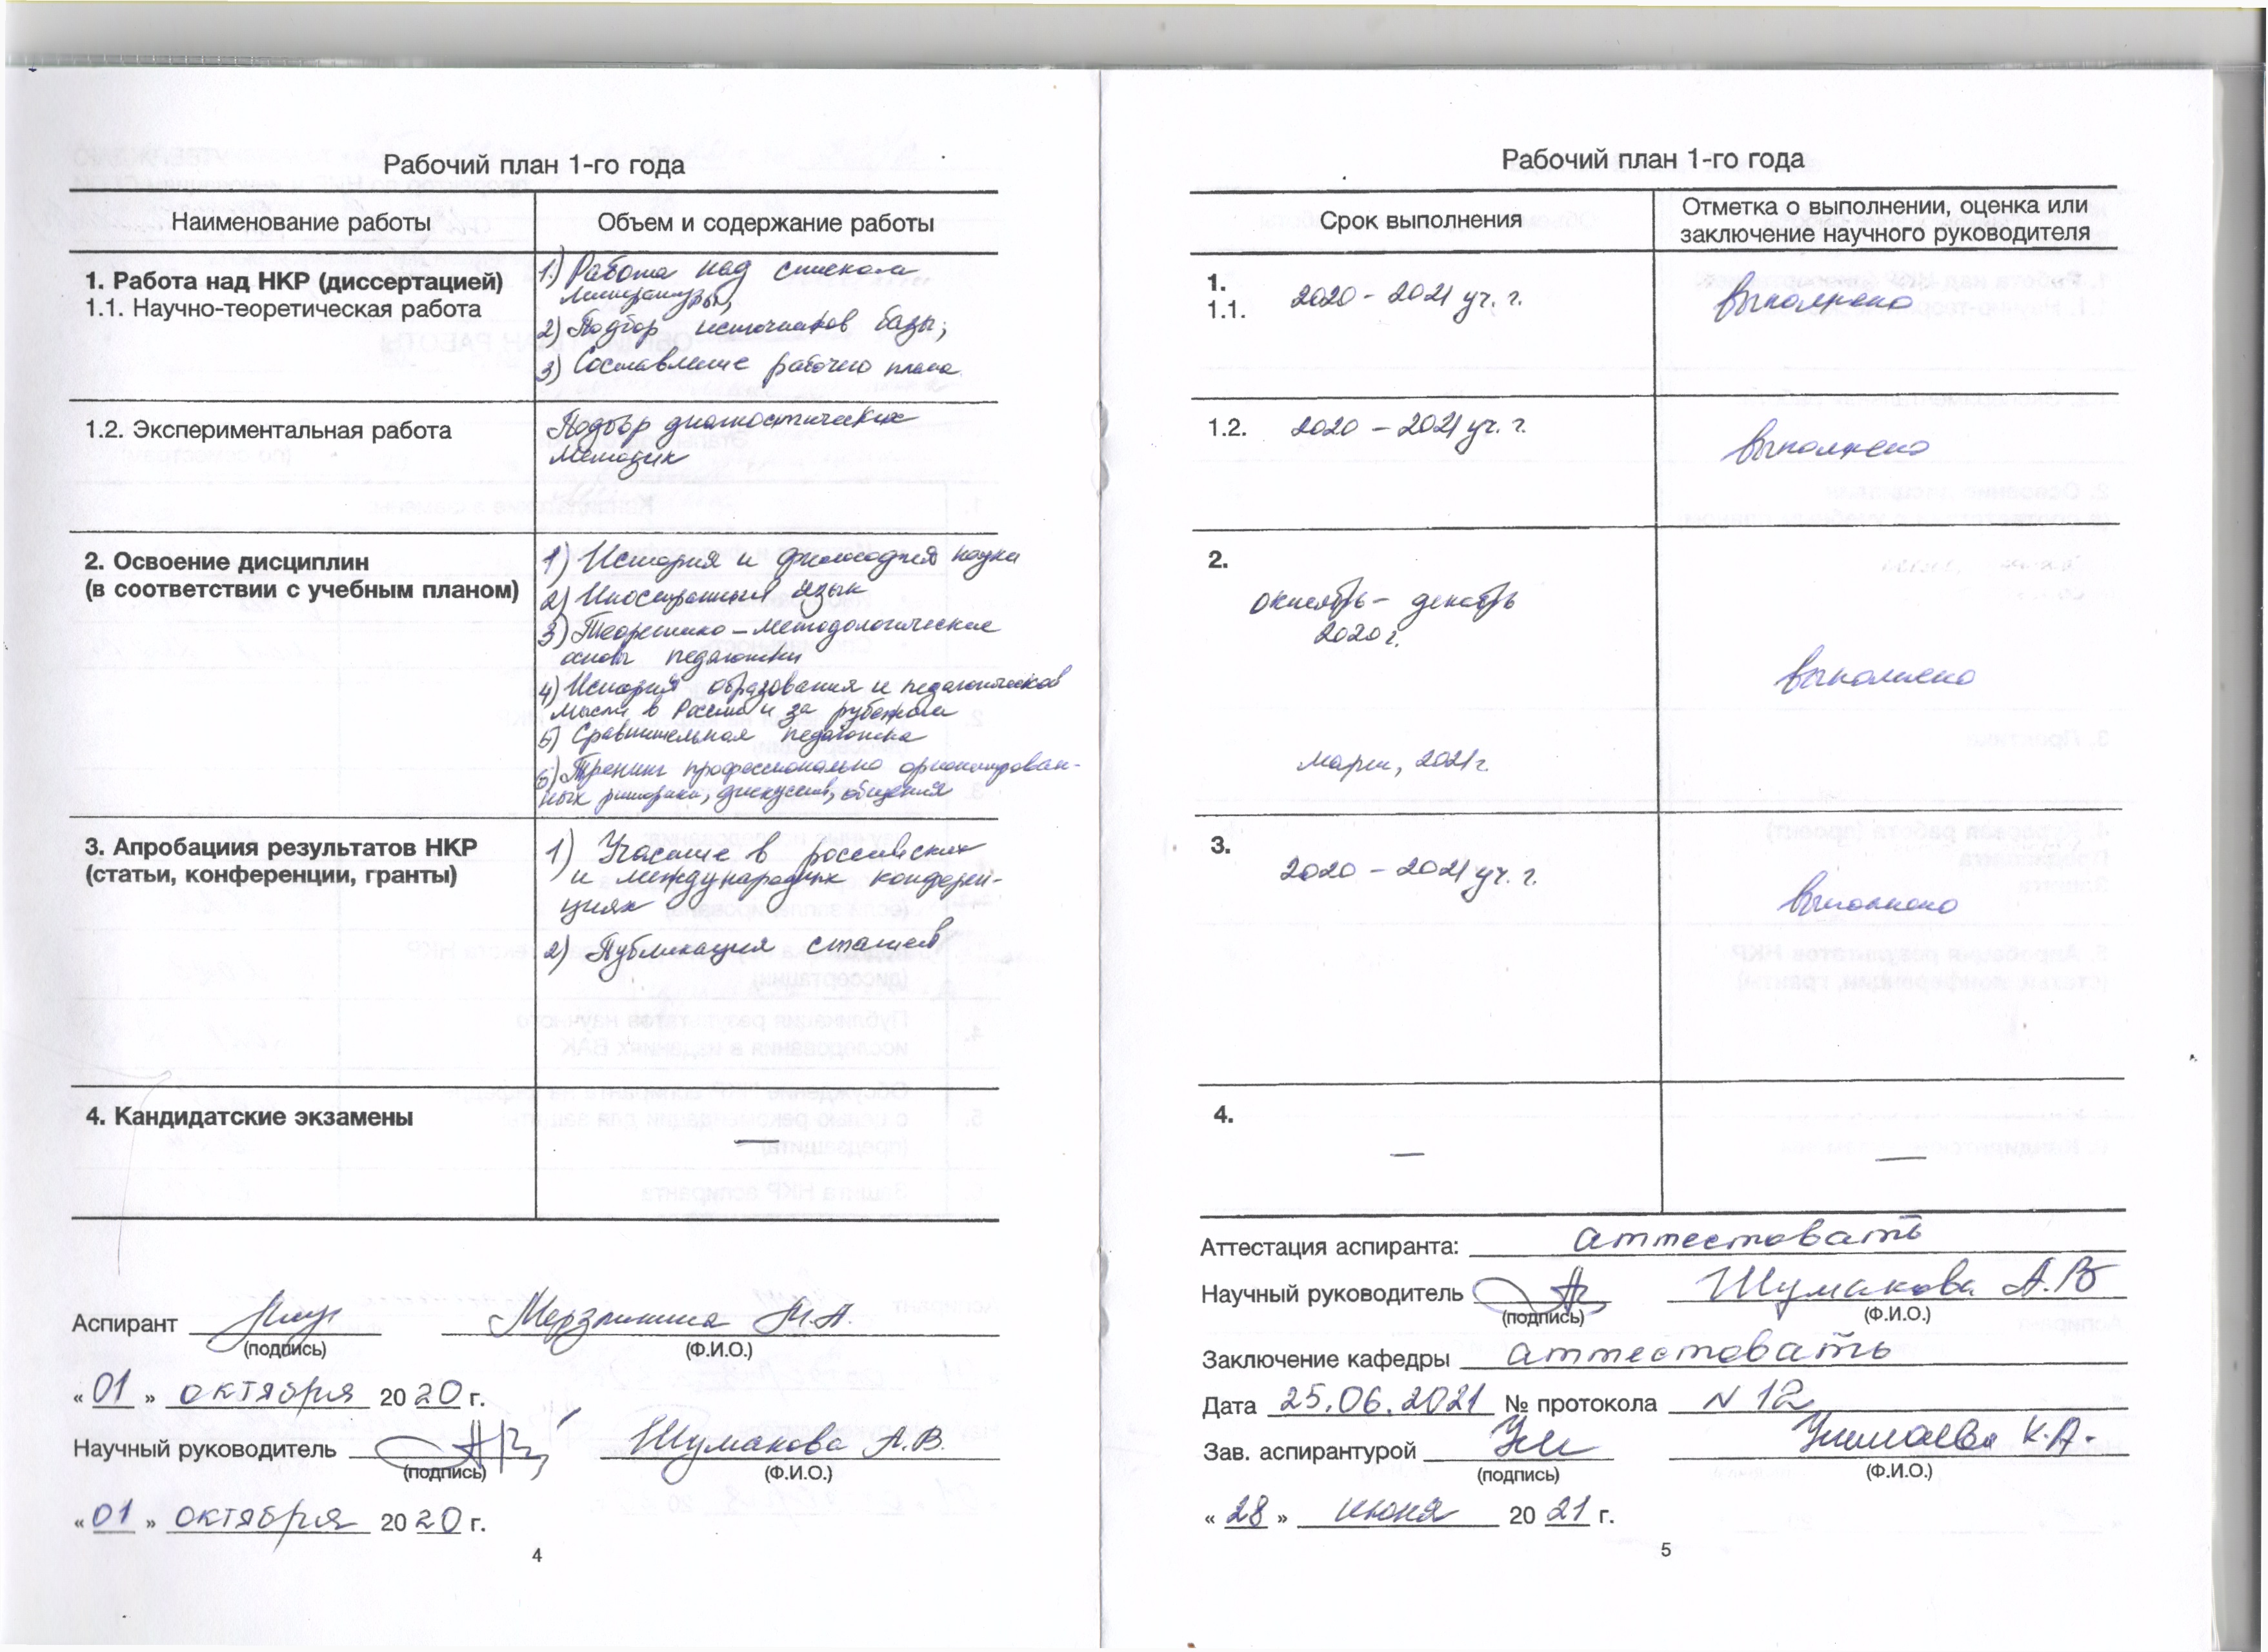 Рабочий план 1-го года
Наименование работы
Объем и содержание работы
1. Работа над НКР (диссертацией)
1.1. Научно-теоретическая работа
1) Работа над списком
литературы;
2) Подбор источников базы;
3) Составление рабочего плана
1.2. Экспериментальная работа
Подбор диагностических
методик
2. Освоение дисциплин
(в соответствии с учебным планом)
1) История и философия науки
2) Иностранный язык
3) Теоретико-методологические
основы педагогики
4) История образования и педагогической
мысли в России и за рубежом
5) Сравнительная педагогика
6) Тренинг профессионально ориентирован-
ных риторики, дискуссий, общения
3. Апробациия результатов НКР
(статьи, конференции, гранты)
1) Участие в российских
и международных конферен-
циях
2) Публикация статей
4. Кандидатские экзамены
—
Аспирант
Мерзликина М.А.
(подпись)
(Ф.И.О.)
« 01 » октября 2020 г.
Научный руководитель
Шумакова А.В.
(подпись)
(Ф.И.О.)
« 01 » октября 2020 г.
4
Рабочий план 1-го года
Срок выполнения
Отметка о выполнении, оценка или
заключение научного руководителя
1.
1.1.
2020 - 2021 уч. г.
выполнено
1.2. 2020 - 2021 уч. г.
выполнено
2.
октябрь - декабрь
2020 г.
выполнено
март, 2021г.
3.
2020 - 2021 уч. г.
выполнено
4.
—
—
Аттестация аспиранта: аттестовать
Научный руководитель
Шумакова А.В
(подпись)
(Ф.И.О.)
Заключение кафедры аттестовать
Дата 25.06.2021 № протокола N 12
Зав. аспирантурой
К.А.
(подпись)
(Ф.И.О.)
« 28 » июня 20 21 г.
5